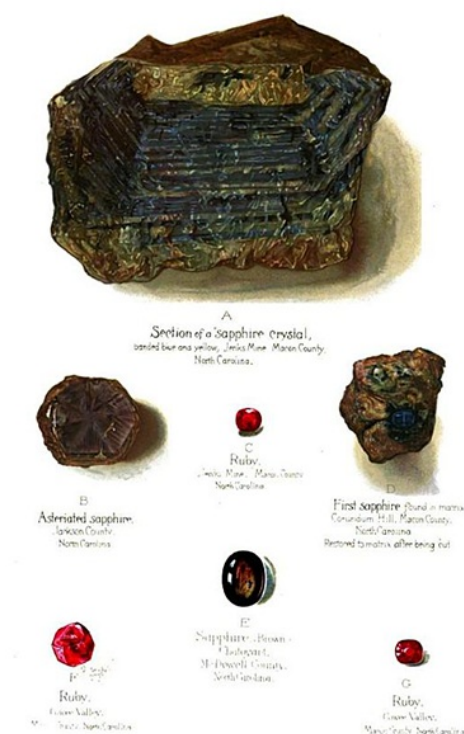 A
Section of a sapphire crystal,
banded blue and yellow, Jenks Mine Macon County,
North Carolina.
B
Asteriated sapphire.
Jackson County,
North Carolina
C
Ruby.
Jenks Mine, Macon County
North Carolina
D
First sapphire found in matrix
Corundum Hill, Macon County,
North Carolina
Restored to matrix after being cut
E
Sapphire, Brown
McDowell County,
North Carolina.
F
Ruby.
Cowee Valley,
Macon County, North Carolina
G
Ruby.
Cowee Valley,
Macon County, North Carolina